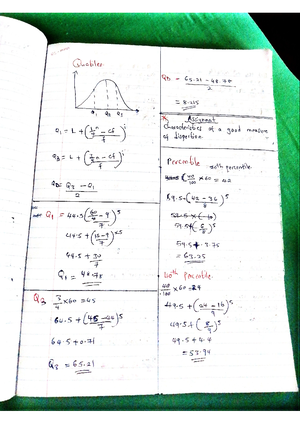 Quartiles
Q₁ Q₂ Q₃
Q₁ = L + (¼n - cf / f) i
Q₃ = L + (¾n - cf / f) i
QD = Q₃ - Q₁ / 2
Q₁ = 44.5 + (60/4 - 9 / 7) 5
44.5 + (15-9 / 7) × 5
44.5 + 30/7
Q₁ = 48.78
Q₃ 3/4 × 60 = 45
64.5 + (45 - 44 / 7) 5
64.5 + 0.71
Q₃ = 65.21
QD = 65.21 - 48.78 / 2
= 8.215
Assignment
Characteristics of a good measure
of dispertion.
Percentile
percentile
× 60 = 42
59.5 + 3.75
= 63.25
40th percentile
40/100 × 60 = 24
49.5 + (24 - 16 / 9) 5
49.5 + (8/9) 5
49.5 + 4.4
= 53.94